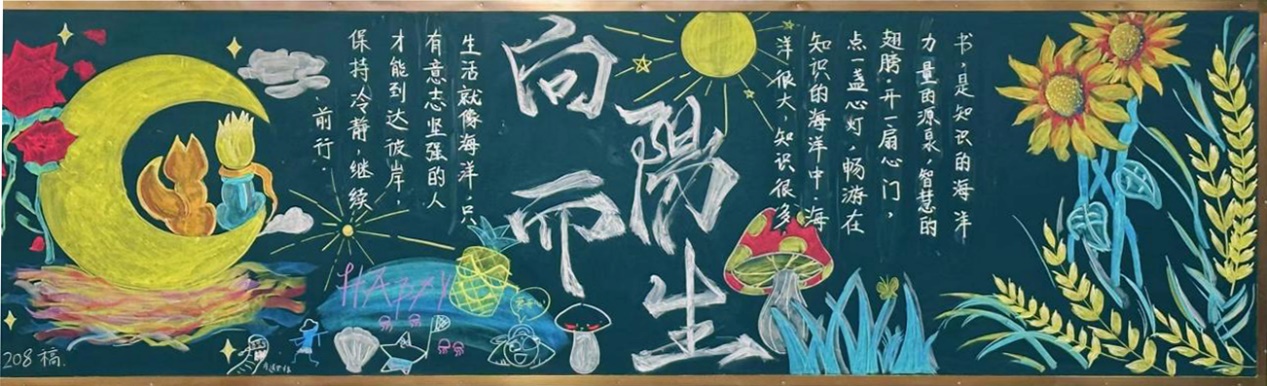 书,是知识的海洋
力量的源泉,智慧的
翅膀.开一扇心门,
点一盏心灯,畅游在
知识的海洋中.海
洋很大,知识很多
向陽
而生
生活就像海洋,只
有意志坚强的人
才能到达彼岸,
保持冷静,继续
前行.
HAppy
208稿.